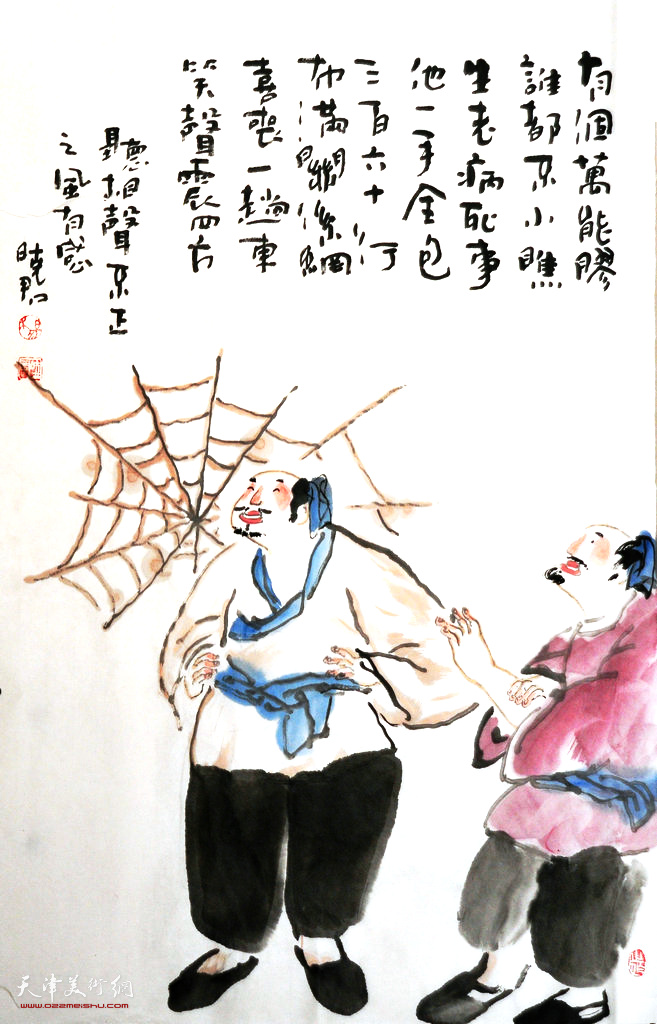 有個萬能膠
誰都不小瞧
生老病死事
他一手全包
三百六十行
布滿關係網
喜喪一趟車
笑聲震四方
聽相聲不正
之風有感
曉君
天津美術網
www.022meishu.com